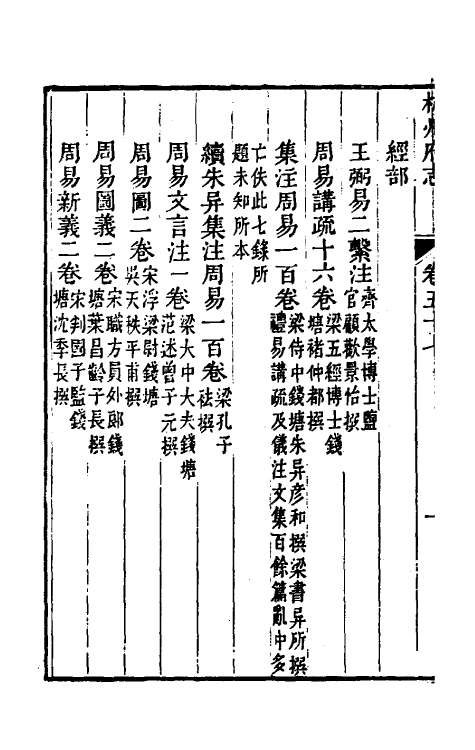 經部
王弼易二繫注齊太學博士鹽官顧歡景怡撰
周易講疏十六卷梁五經博士錢塘褚仲都撰
集注周易一百卷梁侍中錢塘朱异彥和撰梁書异所撰禮易講疏及儀注文集百餘篇亂中多
亡佚此七錄所題未知所本
續朱异集注周易一百卷梁孔子祛撰
周易文言注一卷梁大中大夫錢塘范述曾子元撰
周易圖二卷宋浮梁尉錢塘吳天秩平甫撰
周易圖義二卷宋職方員外郎錢塘葉昌齡子長撰
周易新義二卷宋判國子監錢塘沈季長撰